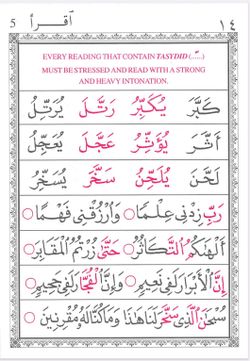 5 اقرأ ١٤
EVERY READING THAT CONTAIN TASYDID (...ّ...)
MUST BE STRESSED AND READ WITH A STRONG
AND HEAVY INTONATION.
كَبَّرَ يُكَبِّرُ رَتَّلَ يُرَتِّلُ
أَثَّرَ يُؤَثِّرُ عَجَّلَ يُعَجِّلُ
لَحَّنَ يُلَحِّنُ سَخَّرَ يُسَخِّرُ
رَبِّ زِدْنِي عِلْمًا ○ وَارْزُقْنِي فَهْمًا ○
أَلْهَىٰكُمُ التَّكَاثُرُ ○ حَتَّىٰ زُرْتُمُ الْمَقَابِرَ ○
إِنَّ الْأَبْرَارَ لَفِي نَعِيمٍ ○ وَإِنَّ الْفُجَّارَ لَفِي جَحِيمٍ ○
سُبْحَٰنَ الَّذِي سَخَّرَ لَنَا هَٰذَا وَمَا كُنَّا لَهُ مُقْرِنِينَ ○